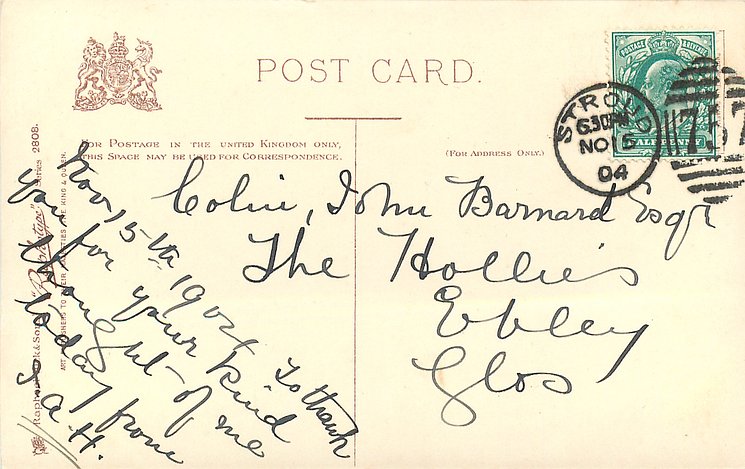 POST CARD.
FOR POSTAGE IN THE UNITED KINGDOM ONLY,
THIS SPACE MAY BE USED FOR CORRESPONDENCE.
(FOR ADDRESS ONLY.)
POSTAGE & REVENUE
HALFPENNY
STROUD
6.30PM
NO 15
04
757
Colin, John Barnard Esqr
The Hollies
Ebley
Glos
Nov 15th 1904 To thank
you for your kind
thought of me
today from
S.A.H.
Raphael Tuck & Sons' "Raphotype" Series 2808.
ART PUBLISHERS TO THEIR MAJESTIES THE KING & QUEEN.